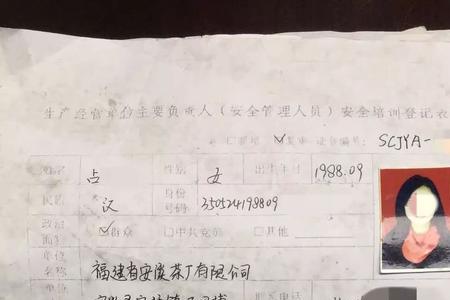 生产经营单位主要负责人（安全管理人员）安全培训登记表
□新培 ☑复审 证书编号：SCJYA-
姓名 占 性别 女 出生年月 1988.09
民族 汉 身份号码 350524198809
政治面貌 ☑群众 □中共党员 □其他
单位名称 福建省安溪茶厂有限公司
单位